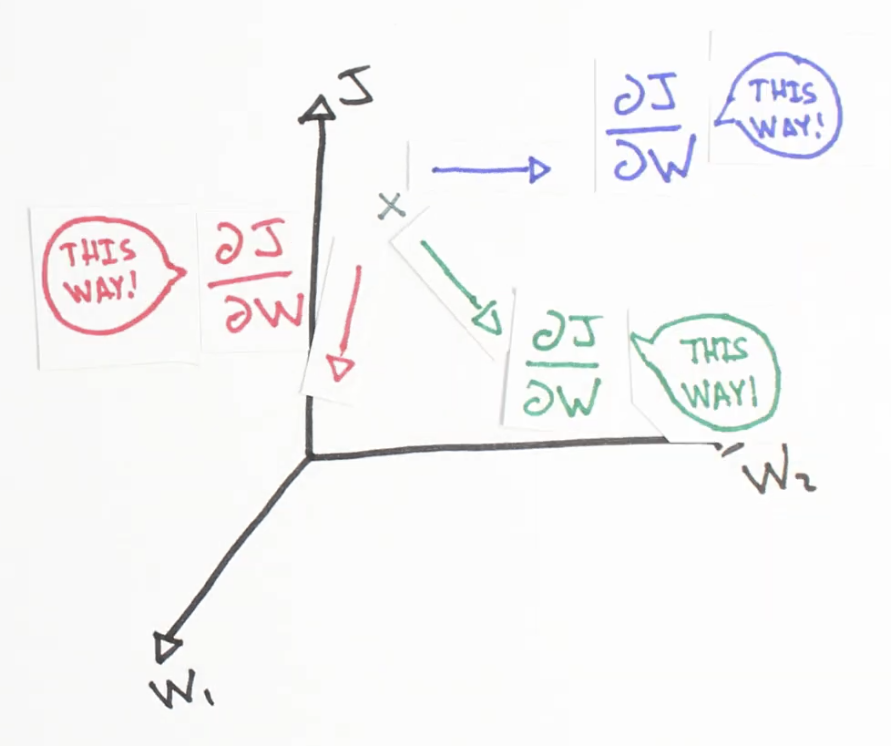 J
∂J
∂W
THIS
WAY!
×
THIS
WAY!
∂J
∂W
∂J
∂W
THIS
WAY!
W₂
W₁